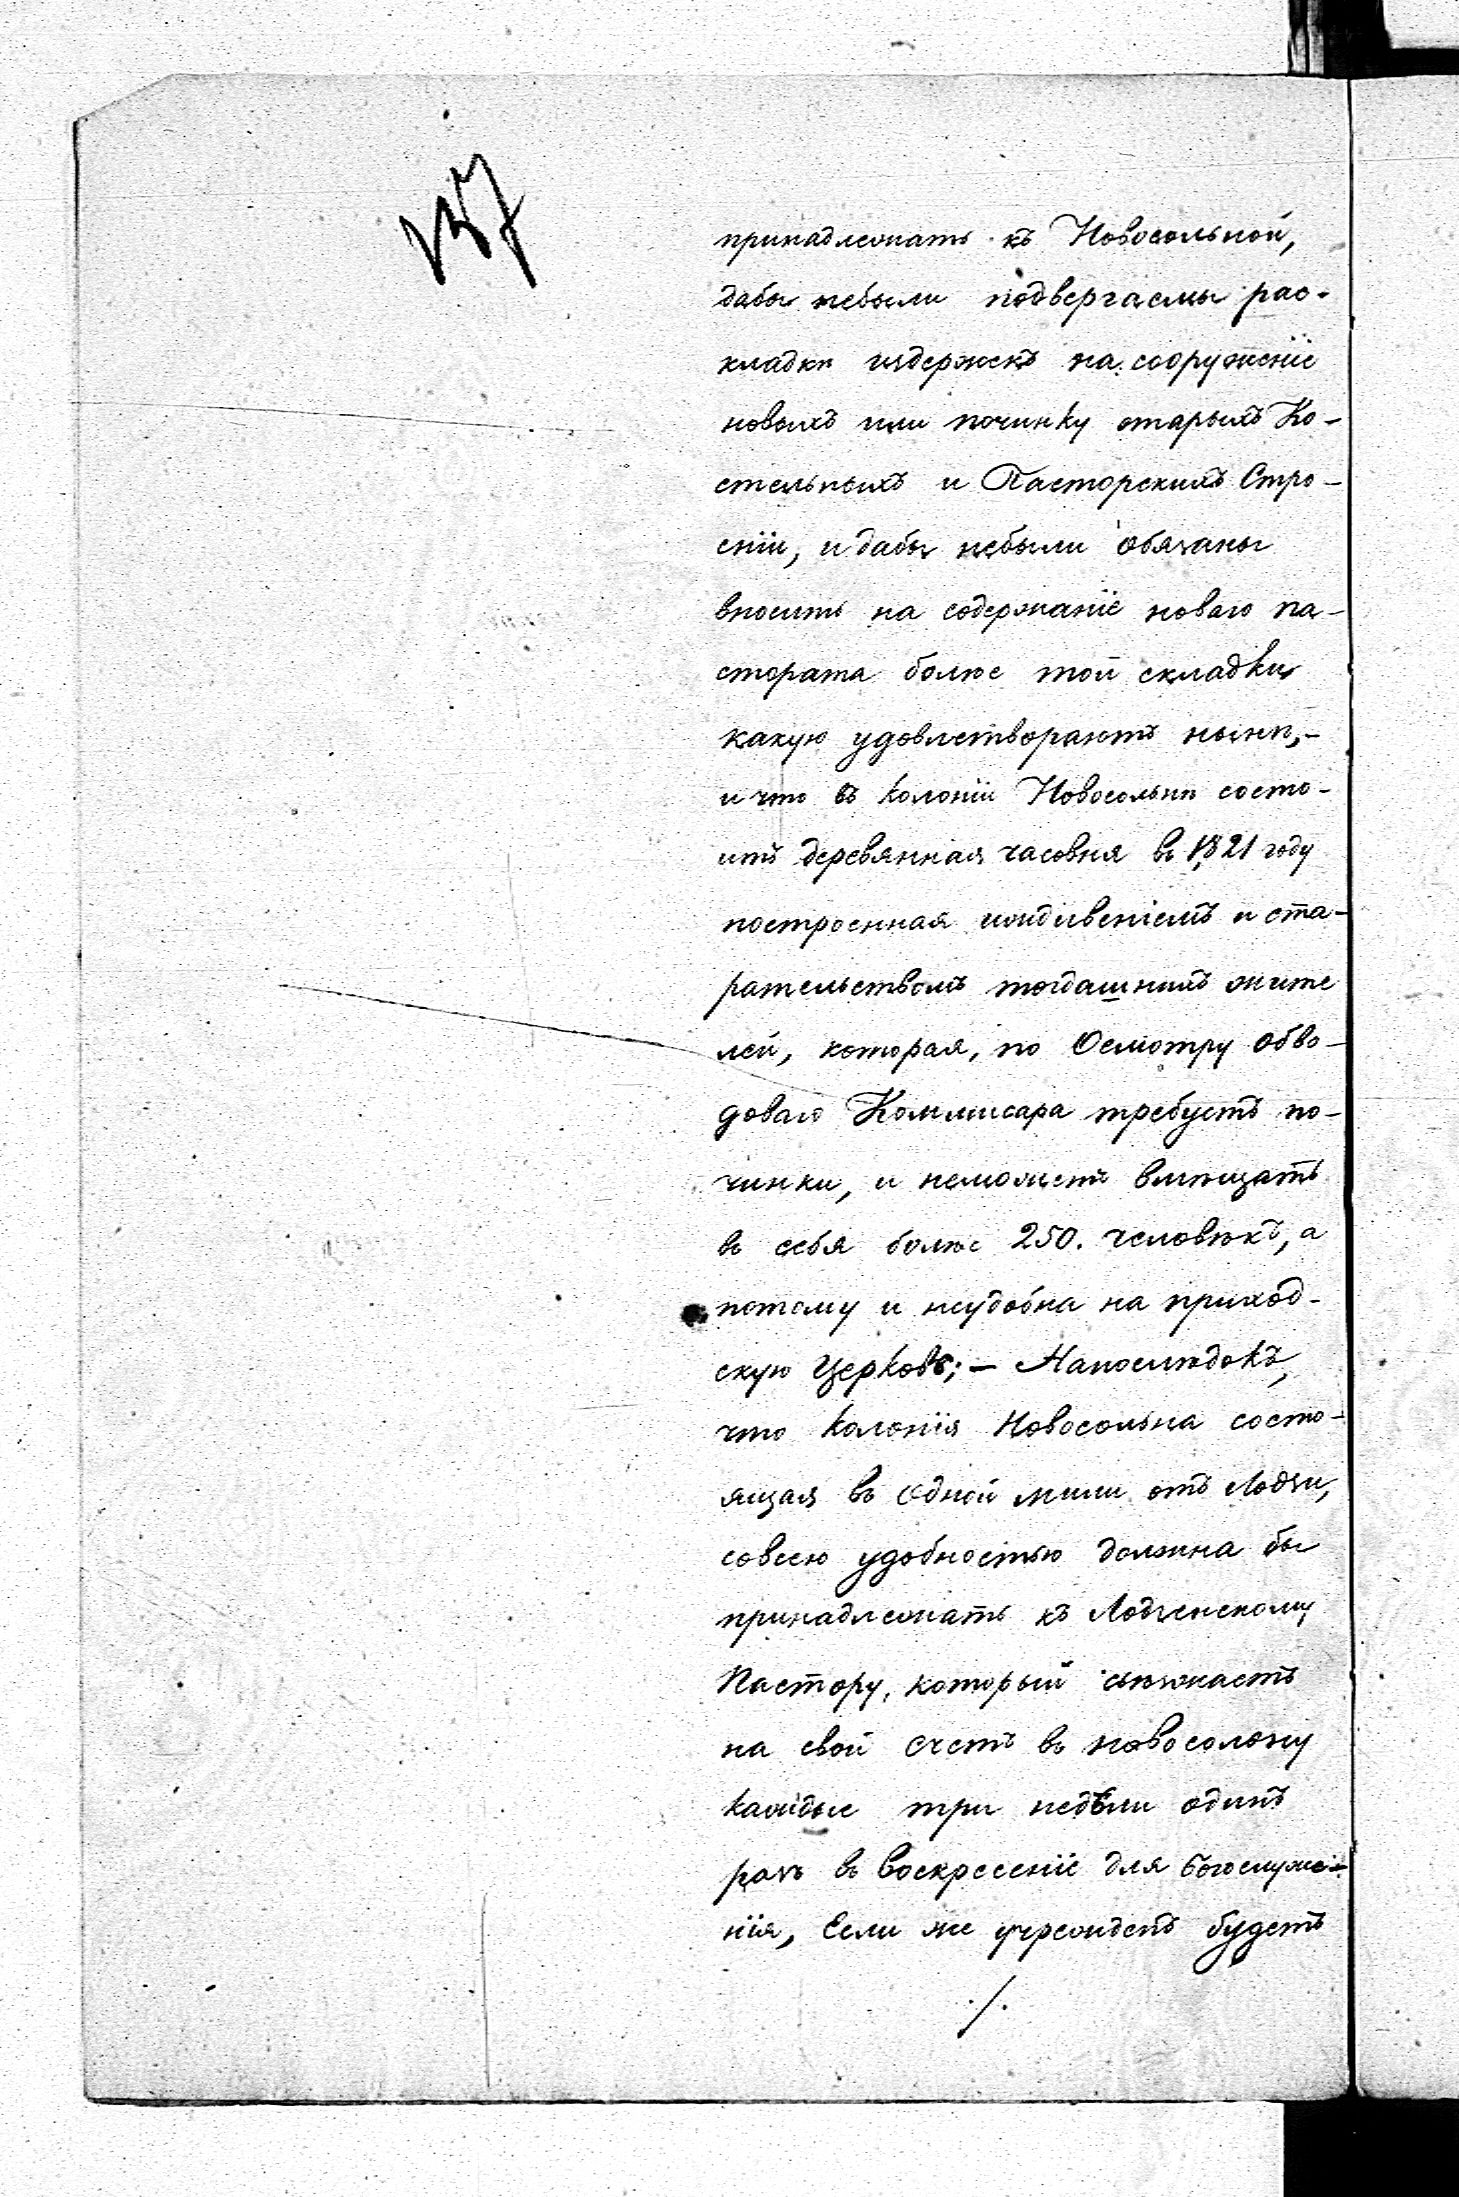 157
принадлежать къ Новосольной,
дабы небыли подвергаемы рас-
кладкѣ издержекъ на сооруженіе
новыхъ или починку старыхъ Ко-
стельныхъ и Пасторскихъ Стро-
еніи, и дабы небыли обязаны
вносить на содержаніе новаго па-
стората болѣе той складки
какую удовлетворяютъ нынѣ,-
и что въ колоніи Новосольнѣ состо-
итъ деревянная часовня въ 1821 году
построенная иждивеніемъ и ста-
рательствомъ тогдашнихъ жите
лей, которая, по Осмотру Обво-
доваго Коммисара требуетъ по-
чинки, и неможетъ вмѣщать
въ себя болѣе 250. человѣкъ, а
потому и неудобна на приход-
скую Церковь; — Напослѣдокъ,
что колонія Новосольна состо-
ящая въ одной мили отъ Лодзи,
совсею удобностью должна бы
принадлежать къ Лодзенскому
Пастору, который съѣзжаетъ
на свой счетъ въ новосолону
каждые три недѣли одинъ
разъ въ воскресеніе для богослуже-
нія, Если же учрежденъ будетъ
./.